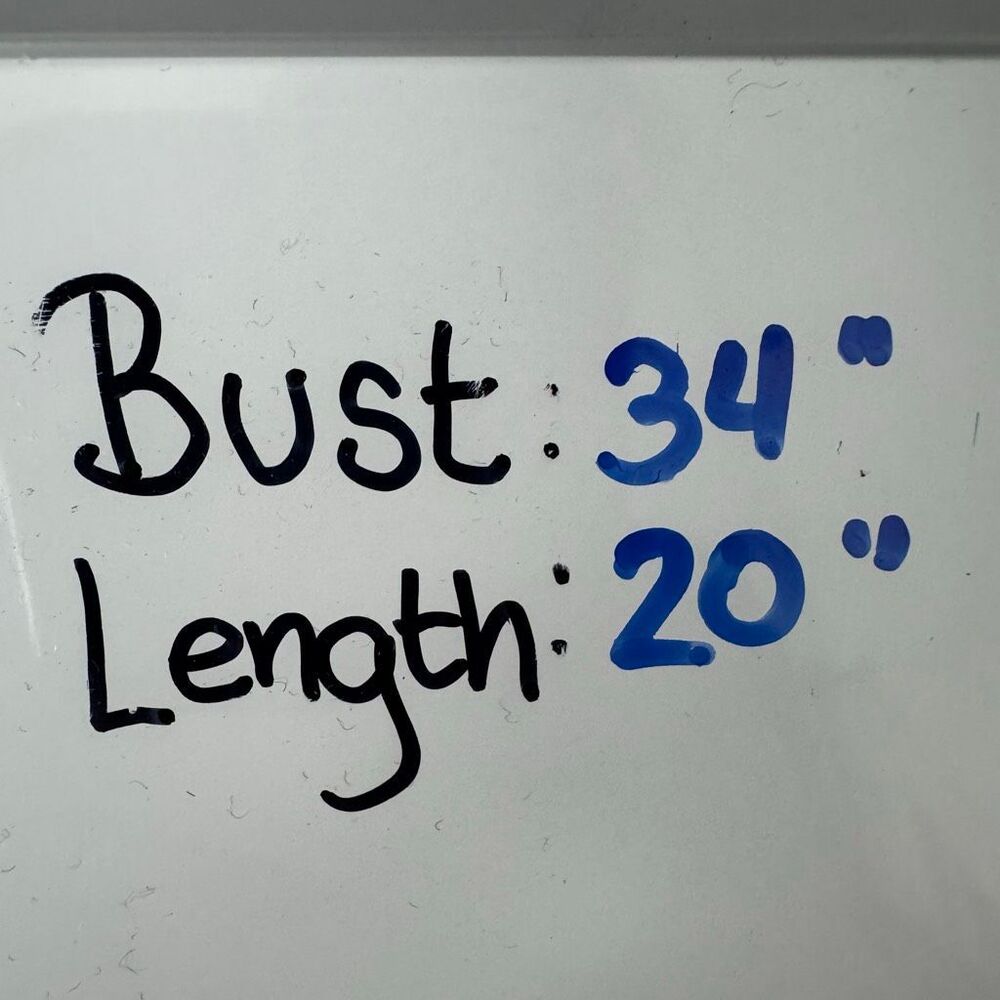 Bust: 34"
Length: 20"